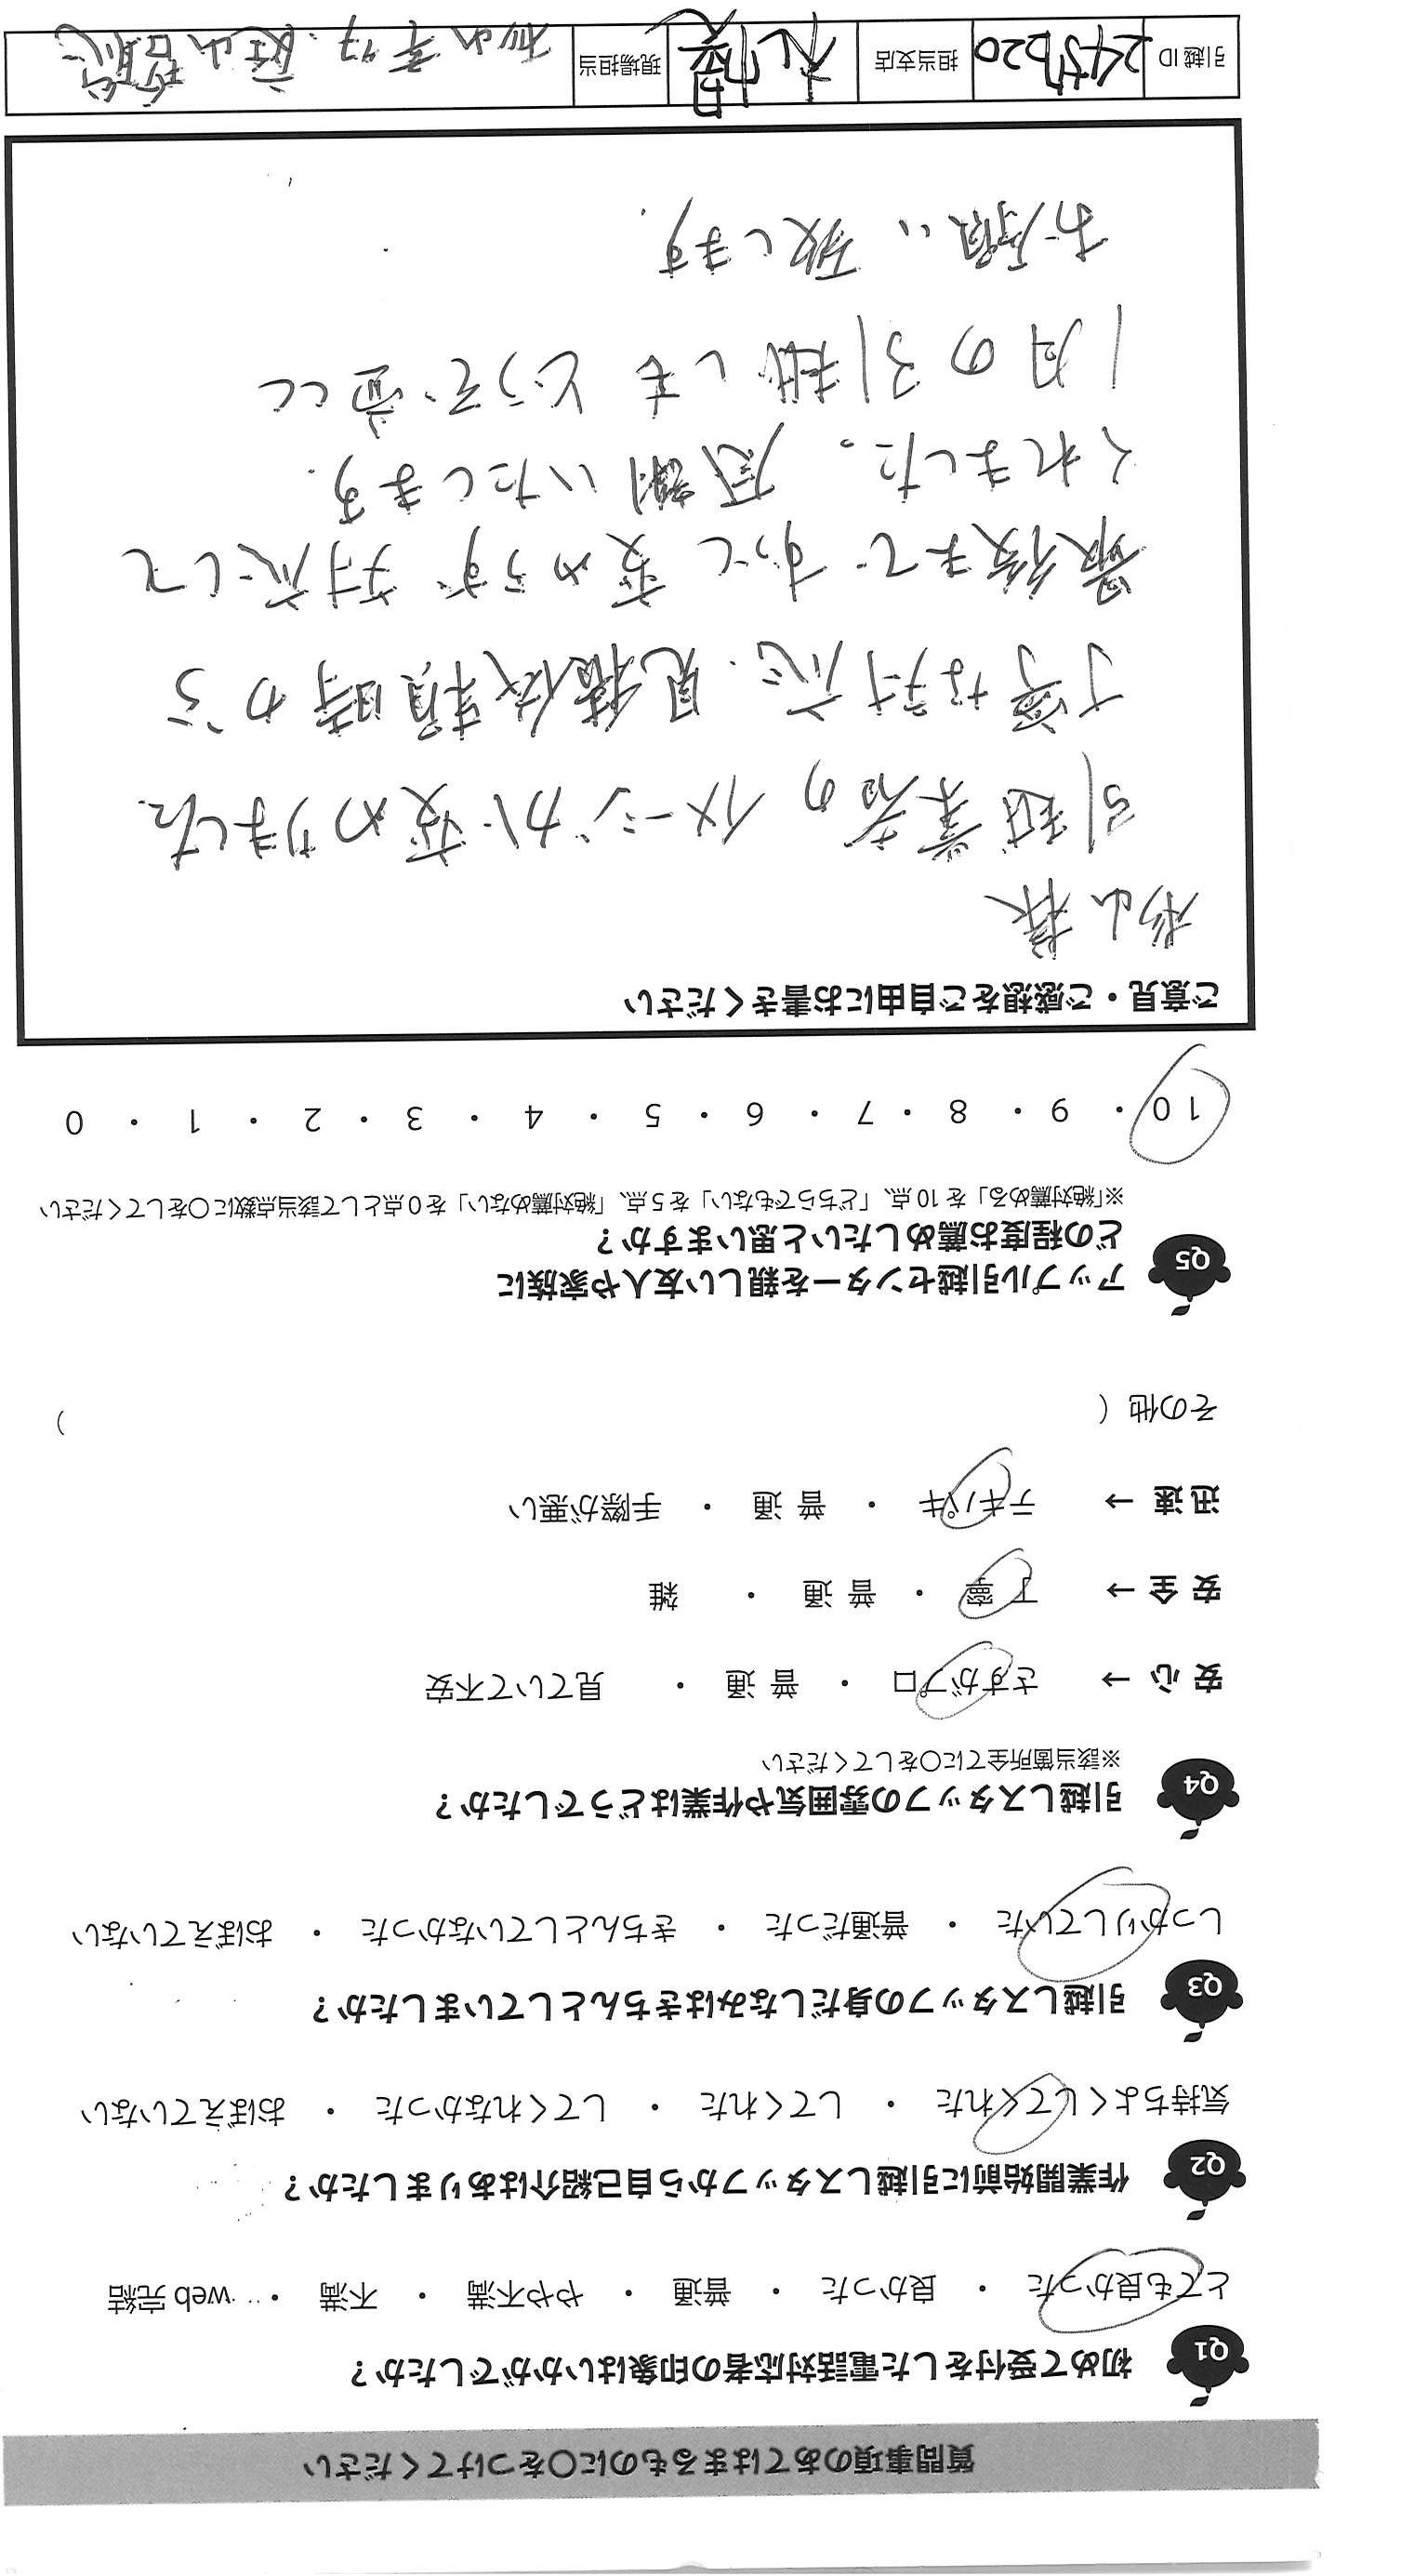 質問事項のあてはまるものに○をつけてください
Q1 初めて受付をした電話対応者の印象はいかがでしたか？
とても良かった ・ 良かった ・ 普通 ・ やや不満 ・ 不満 ・ web 完結
Q2 作業開始前に引越しスタッフから自己紹介はありましたか？
気持ちよくしてくれた ・ してくれた ・ してくれなかった ・ おぼえていない
Q3 引越しスタッフの身だしなみはきちんとしていましたか？
しっかりしていた ・ 普通だった ・ きちんとしていなかった ・ おぼえていない
Q4 引越しスタッフの雰囲気や作業はどうでしたか？
※該当箇所全てに○をしてください
安 心 → さすがプロ ・ 普 通 ・ 見ていて不安
安 全 → 丁 寧 ・ 普 通 ・ 雑
迅 速 → テキパキ ・ 普 通 ・ 手際が悪い
その他（ ）
Q5 アップル引越センターを親しい友人や家族に
どの程度お薦めしたいと思いますか？
※「絶対薦める」を 10 点、「どちらでもない」を 5 点、「絶対薦めない」を 0 点として該当点数に○をしてください
10 ・ 9 ・ 8 ・ 7 ・ 6 ・ 5 ・ 4 ・ 3 ・ 2 ・ 1 ・ 0
ご意見・ご感想をご自由にお書きください
杉山様
引越業者のイメージが変わりました
丁寧な対応、見積依頼時から
最後まで ずっと 変わらず 対応して
くれました。感謝いたします.
1月の引越しもどうぞ宜しく
お願い致します.
引越 ID 担当支店 札幌 現場担当